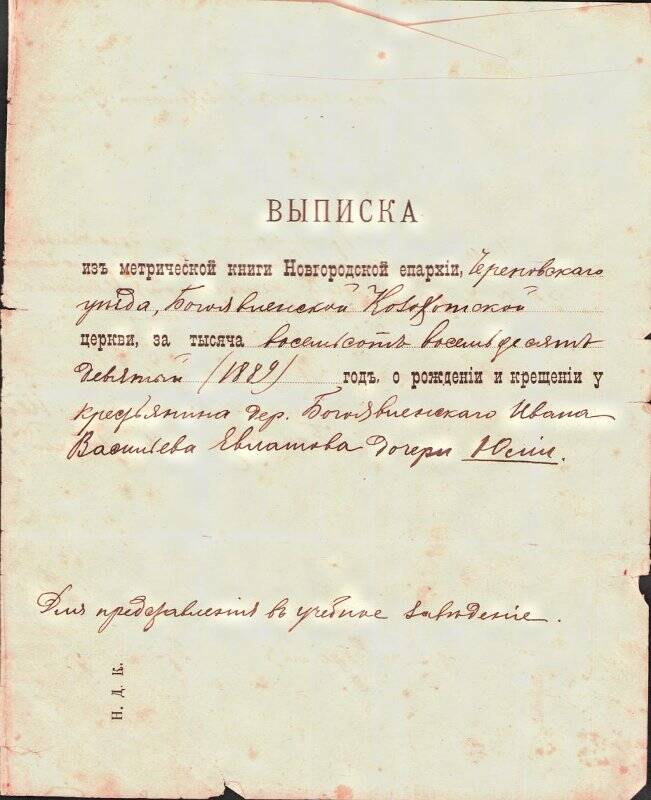 ВЫПИСКА
изъ метрической книги Новгородской епархіи, Череповскаго
уѣзда, Богоявленской
церкви, за тысяча восемьсотъ восемьдесятъ
девятый (1889) годъ, о рожденіи и крещеніи у
крестьянина дер. Богоявленскаго Ивана
Васильева Евлатова дочери Юліи.
Для представленія въ учебное заведеніе.
Н. Д. К.